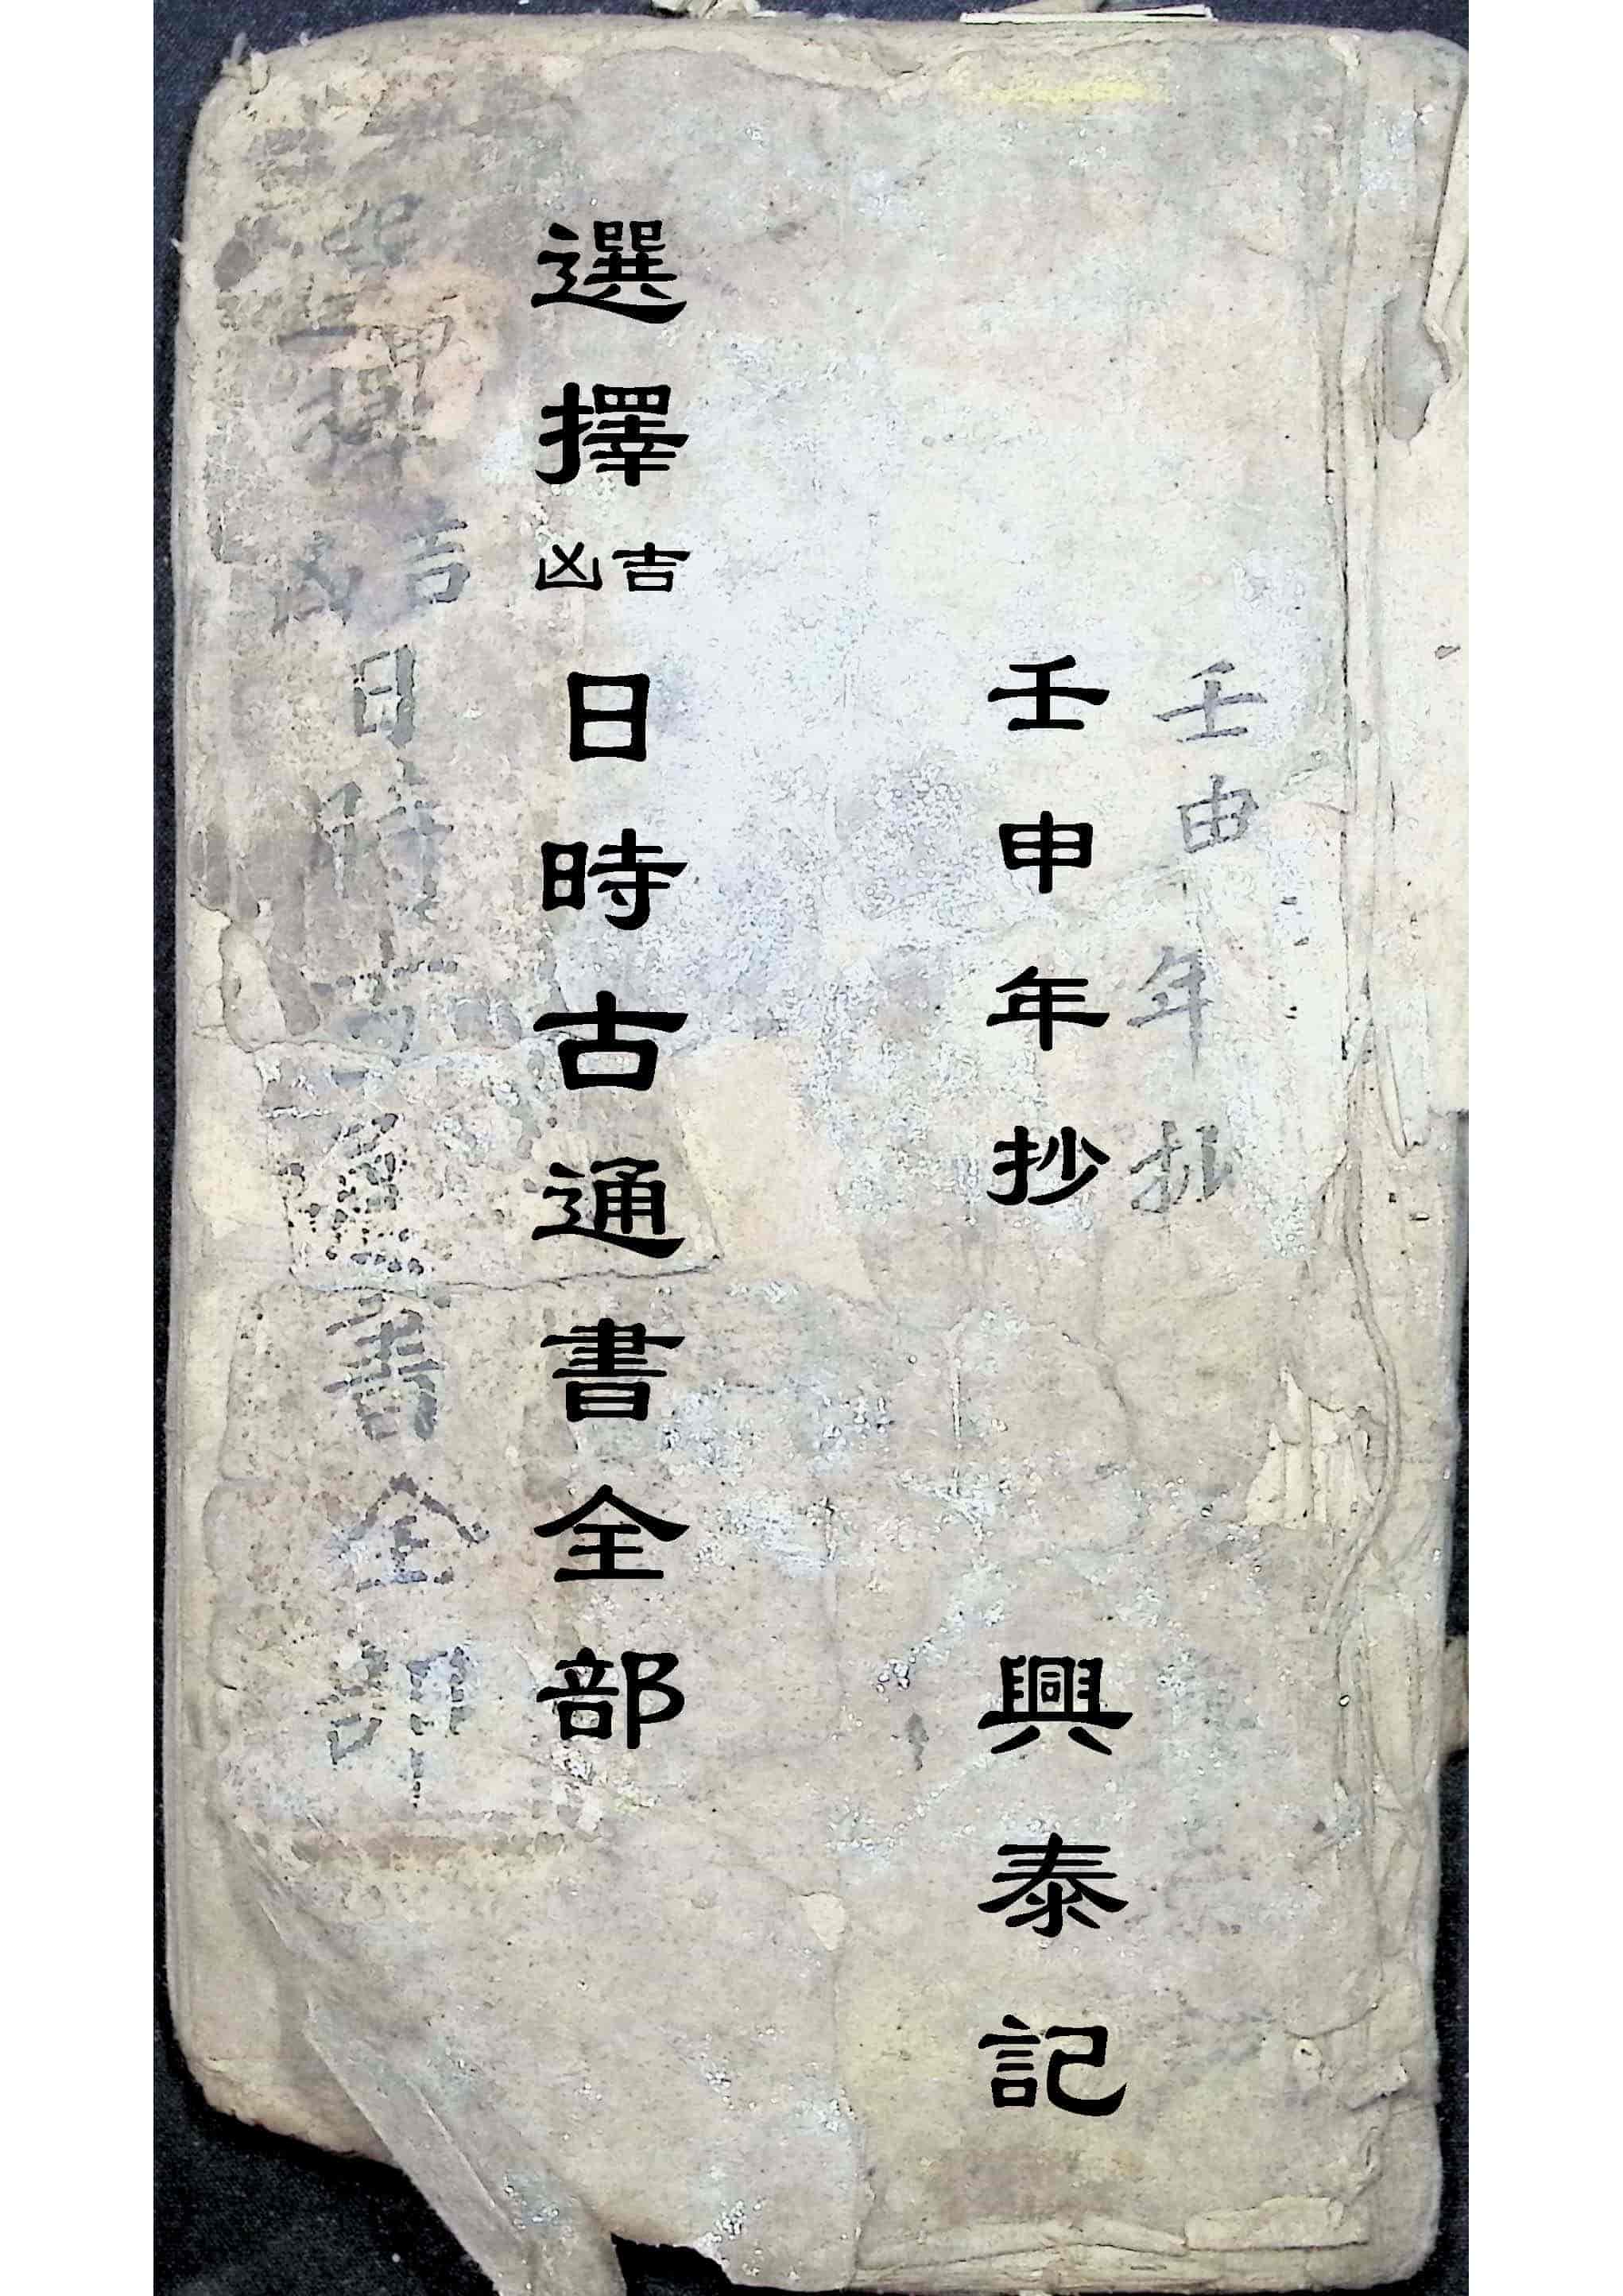 壬申年抄
壬申年抄
興泰記
選擇吉凶日時古通書全部
吉凶日時書全部